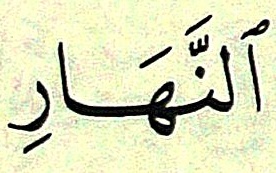 ٱلنَّهَارِ